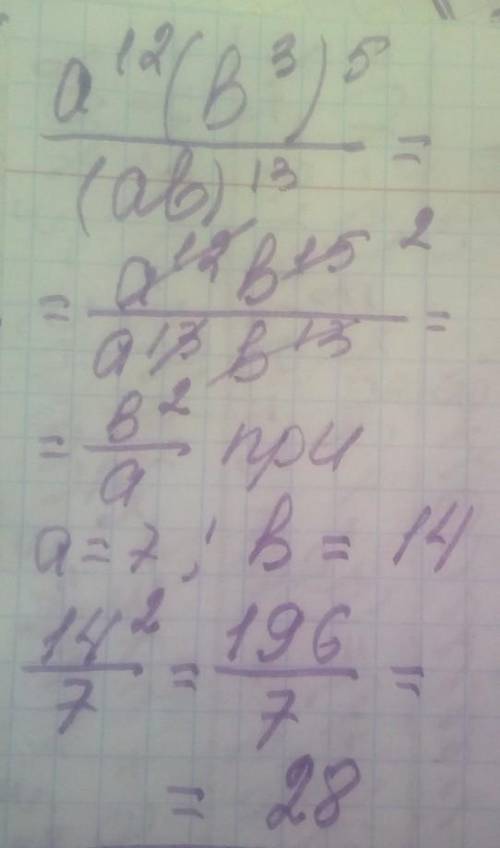 a¹²(b³)⁵
(ab)¹³ =
= a¹²b¹⁵ ²
a¹³b¹³ =
= b²/a при
a = 7; b = 14
14²/7 = 196/7 =
= 28